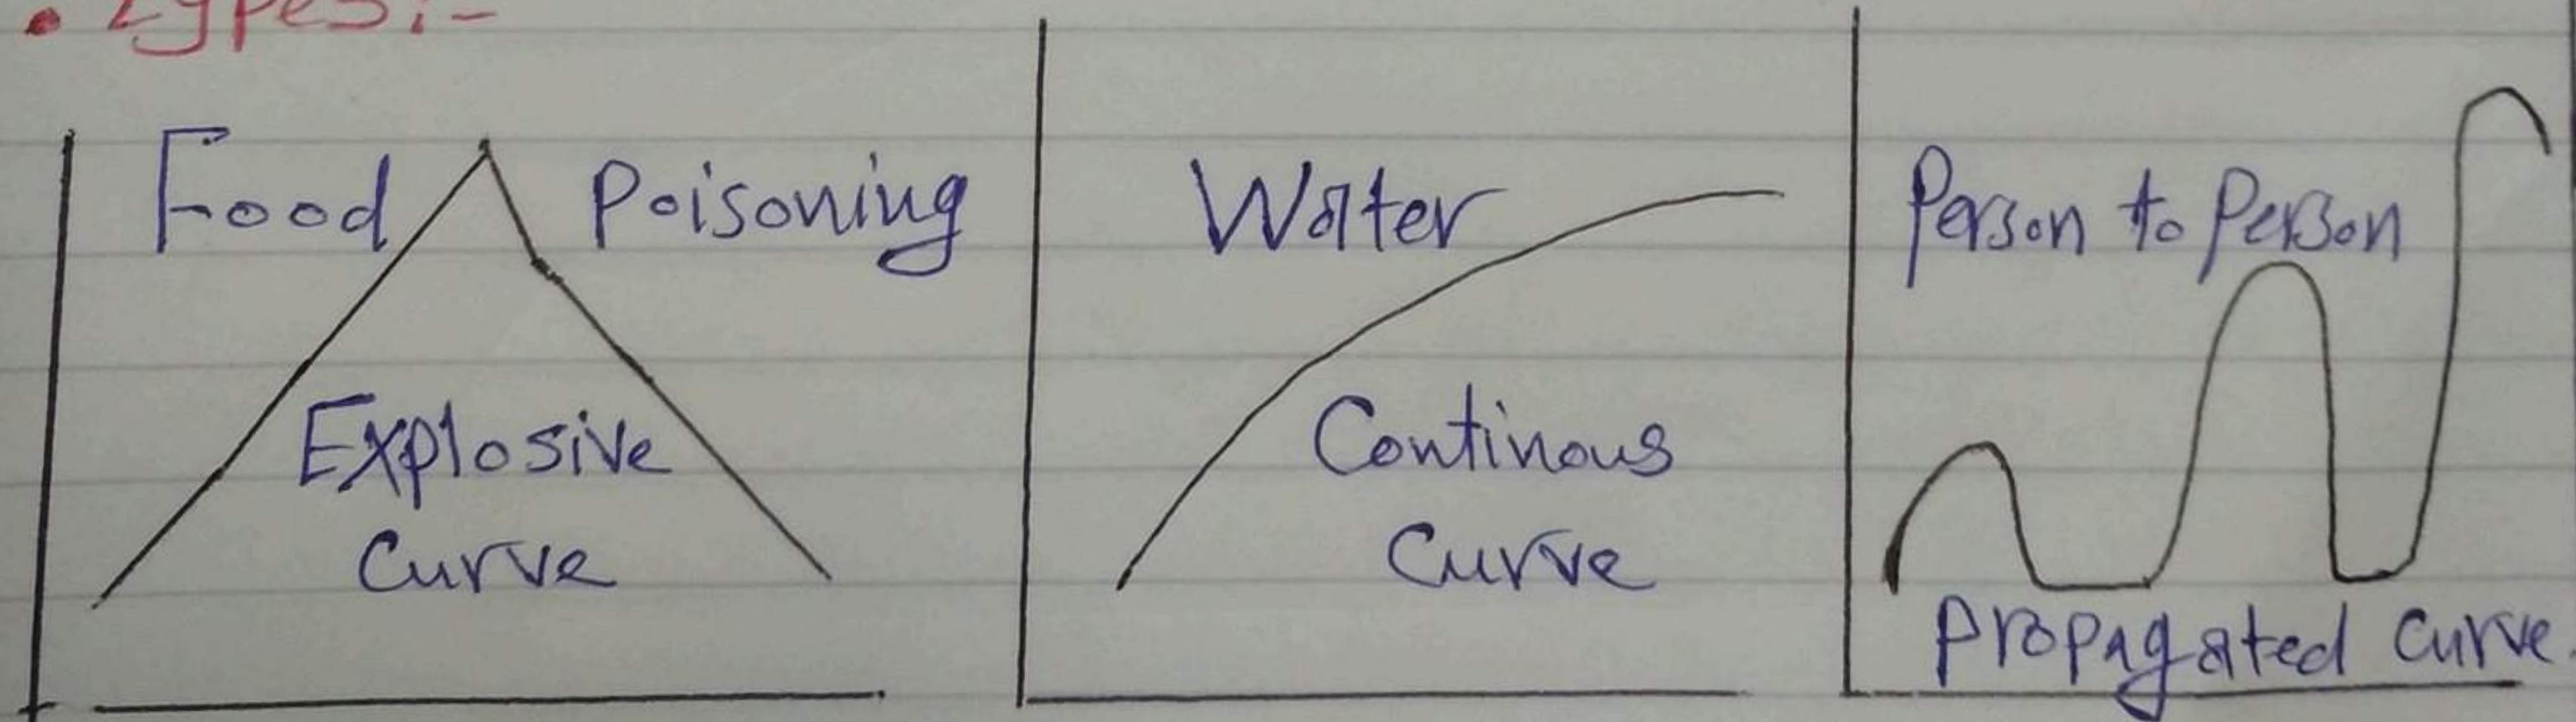 • Types:-
Food Poisoning
Explosive
Curve
Water
Continous
Curve
Person to Person
Propagated Curve.